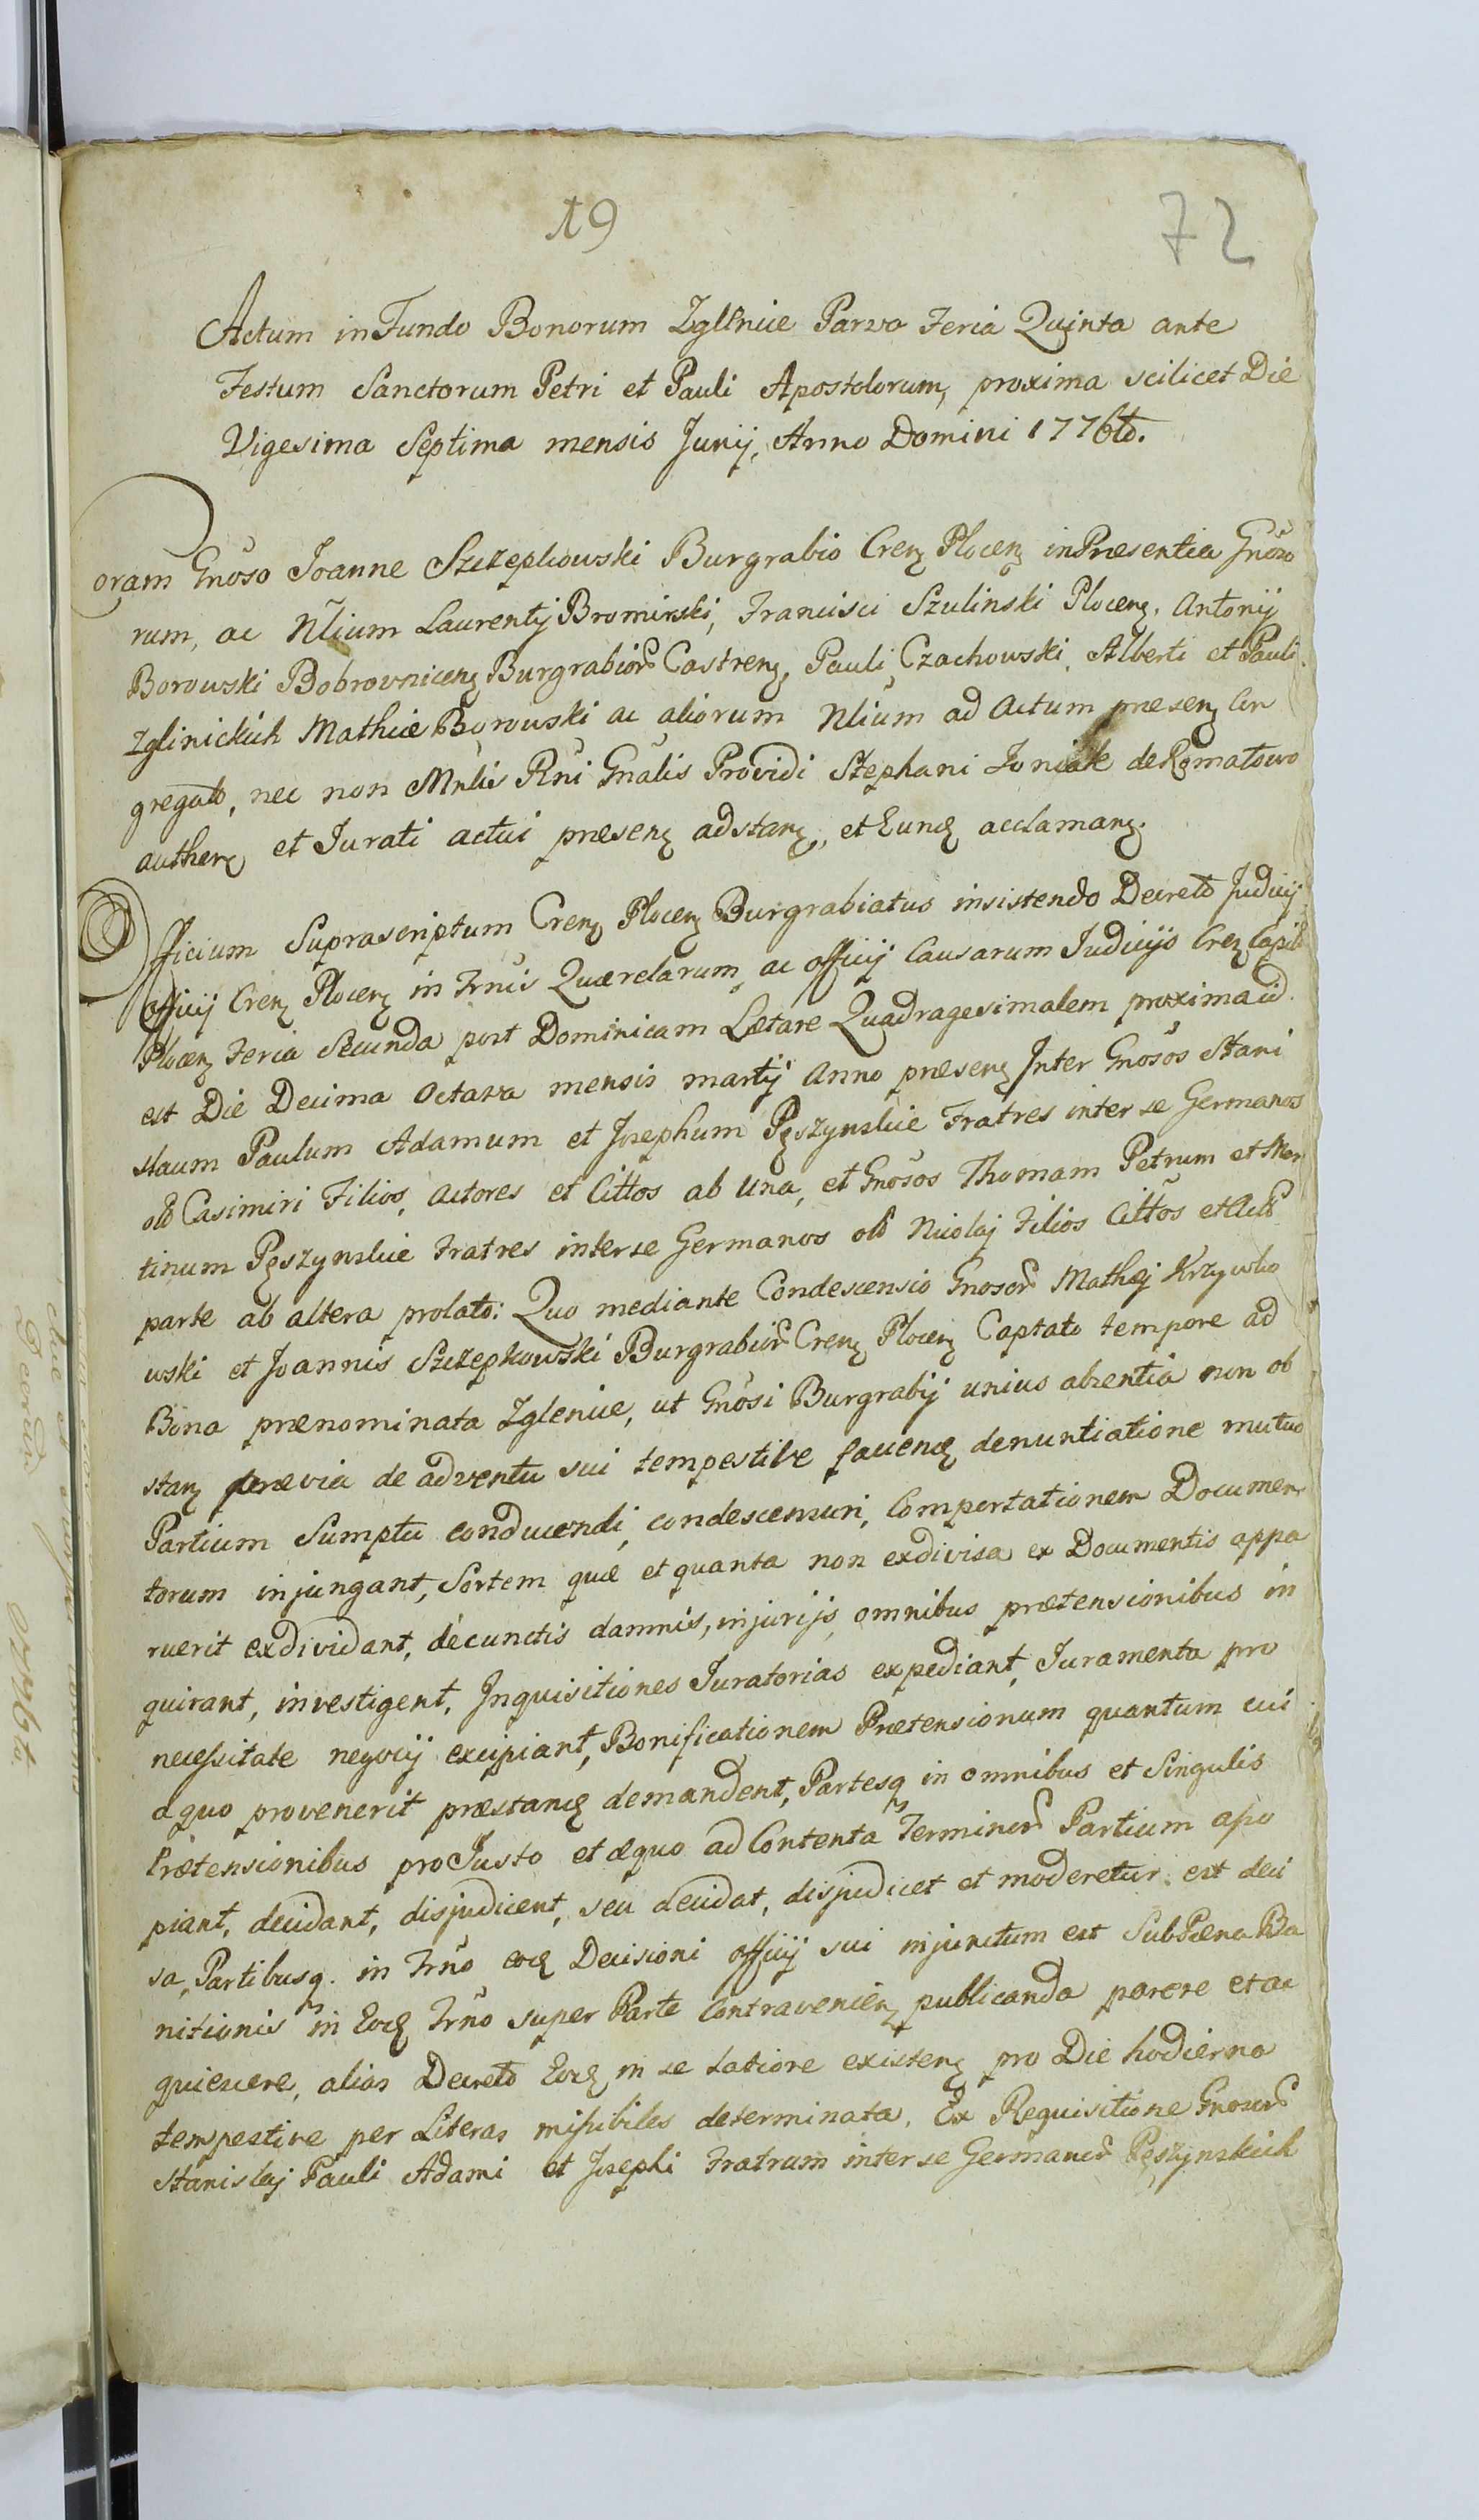 19
72
Actum in Fundo Bonorum Zglenice Parvo Feria Quinta ante
Festum Sanctorum Petri et Pauli Apostolorum, proxima scilicet Die
Vigesima Septima mensis Junij, Anno Domini 1776to.
Coram Gnõso Joanne Szczepkowski Burgrabio Cren̄ Plocen̄ in Præsentia Gnõso
rum, ac Nlium Laurentij Bromirski, Francisci Szulinski Plocen̄. Antonij
Borowski Bobrovnicen̄ Burgrabior̃ Castren̄, Pauli Czachowski, Alberti et Pauli
Zglinickich Mathiæ Borowski ac aliorum Nlium ad Actum præsen̄ Con
gregato, nec non Mnlis Rni Gnãlis Providi Stephani Joniak de Romatowo
authen̄ et Jurati actui præsen̄ adstan̄, et Eundę acclaman̄.
Officium Suprascriptum Cren̄ Plocen̄ Burgrabiatus insistendo Decreto Judicij
Officij Cren̄ Plocen̄ in Trnis Quærelarum ac officij Causarum Judicijs Cren̄ Capit
Plocen̄ Feria Secunda post Dominicam Lætare Quadragesimalem proxima id
est Die Decima Octava mensis martij Anno præsen̄ Inter Gnõsos Stani
slaum Paulum Adamum et Josephum Pęszynskie Fratres inter se Germanos
olo Casimiri Filios, Actores et Cittos ab Una, et Gnõsos Thomam Petrum et Mar
tinum Pęszynskie Fratres inter se Germanos olo Nicolaj Filios Cittõs et Acto
parte ab altera prolato: Quo mediante Condescensio Gnosor̃ Mathæj Krzywko
wski et Joannis Szczepkowski Burgrabior̃ Cren̄ Plocen̄ Captato tempore ad
Bona prænominata Zglenice, ut Gnõsi Burgrabij unius absentia non ob
stan̄ prævia de adventu sui tempestive faciendę denuntiatione mutuo
Partium Sumptu conducendi, condescensuri, Comportationem Documen
torum injungant, Sortem quæ et quanta non exdivisa ex Documentis appa
ruerit exdividant, de cunctis damnis, injurijs, omnibus prætensionibus in
quirant, investigent, Inquisitiones Juratorias expediant, Juramenta pro
necessitate negocij excipiant, Bonificationem Prætensionum quantum cui
a quo provenerit præstandę demandent, Partesq in omnibus et Singulis
Prætensionibus pro Justo et æquo ad Contenta Terminor̃ Partium aspi
piant, decidant, disjudicent, seu decidat, disjudicet et moderetur: est deci
sa, Partibusq. in Trño eodę Decisioni officij sui injunctum est Sub Pæna Ba
nitionis in Eodę Trño super Parte Contravenien̄ publicanda parere et ac
quiescere, alias Decreto Eodę in se latiore existen̄ pro Die hodierna
tempestive per Literas missibiles determinata, Ex Requisitione Gnosor̃
Stanislaj Pauli Adami et Josephi Fratrum inter se Germanor̃ Pęszynskich